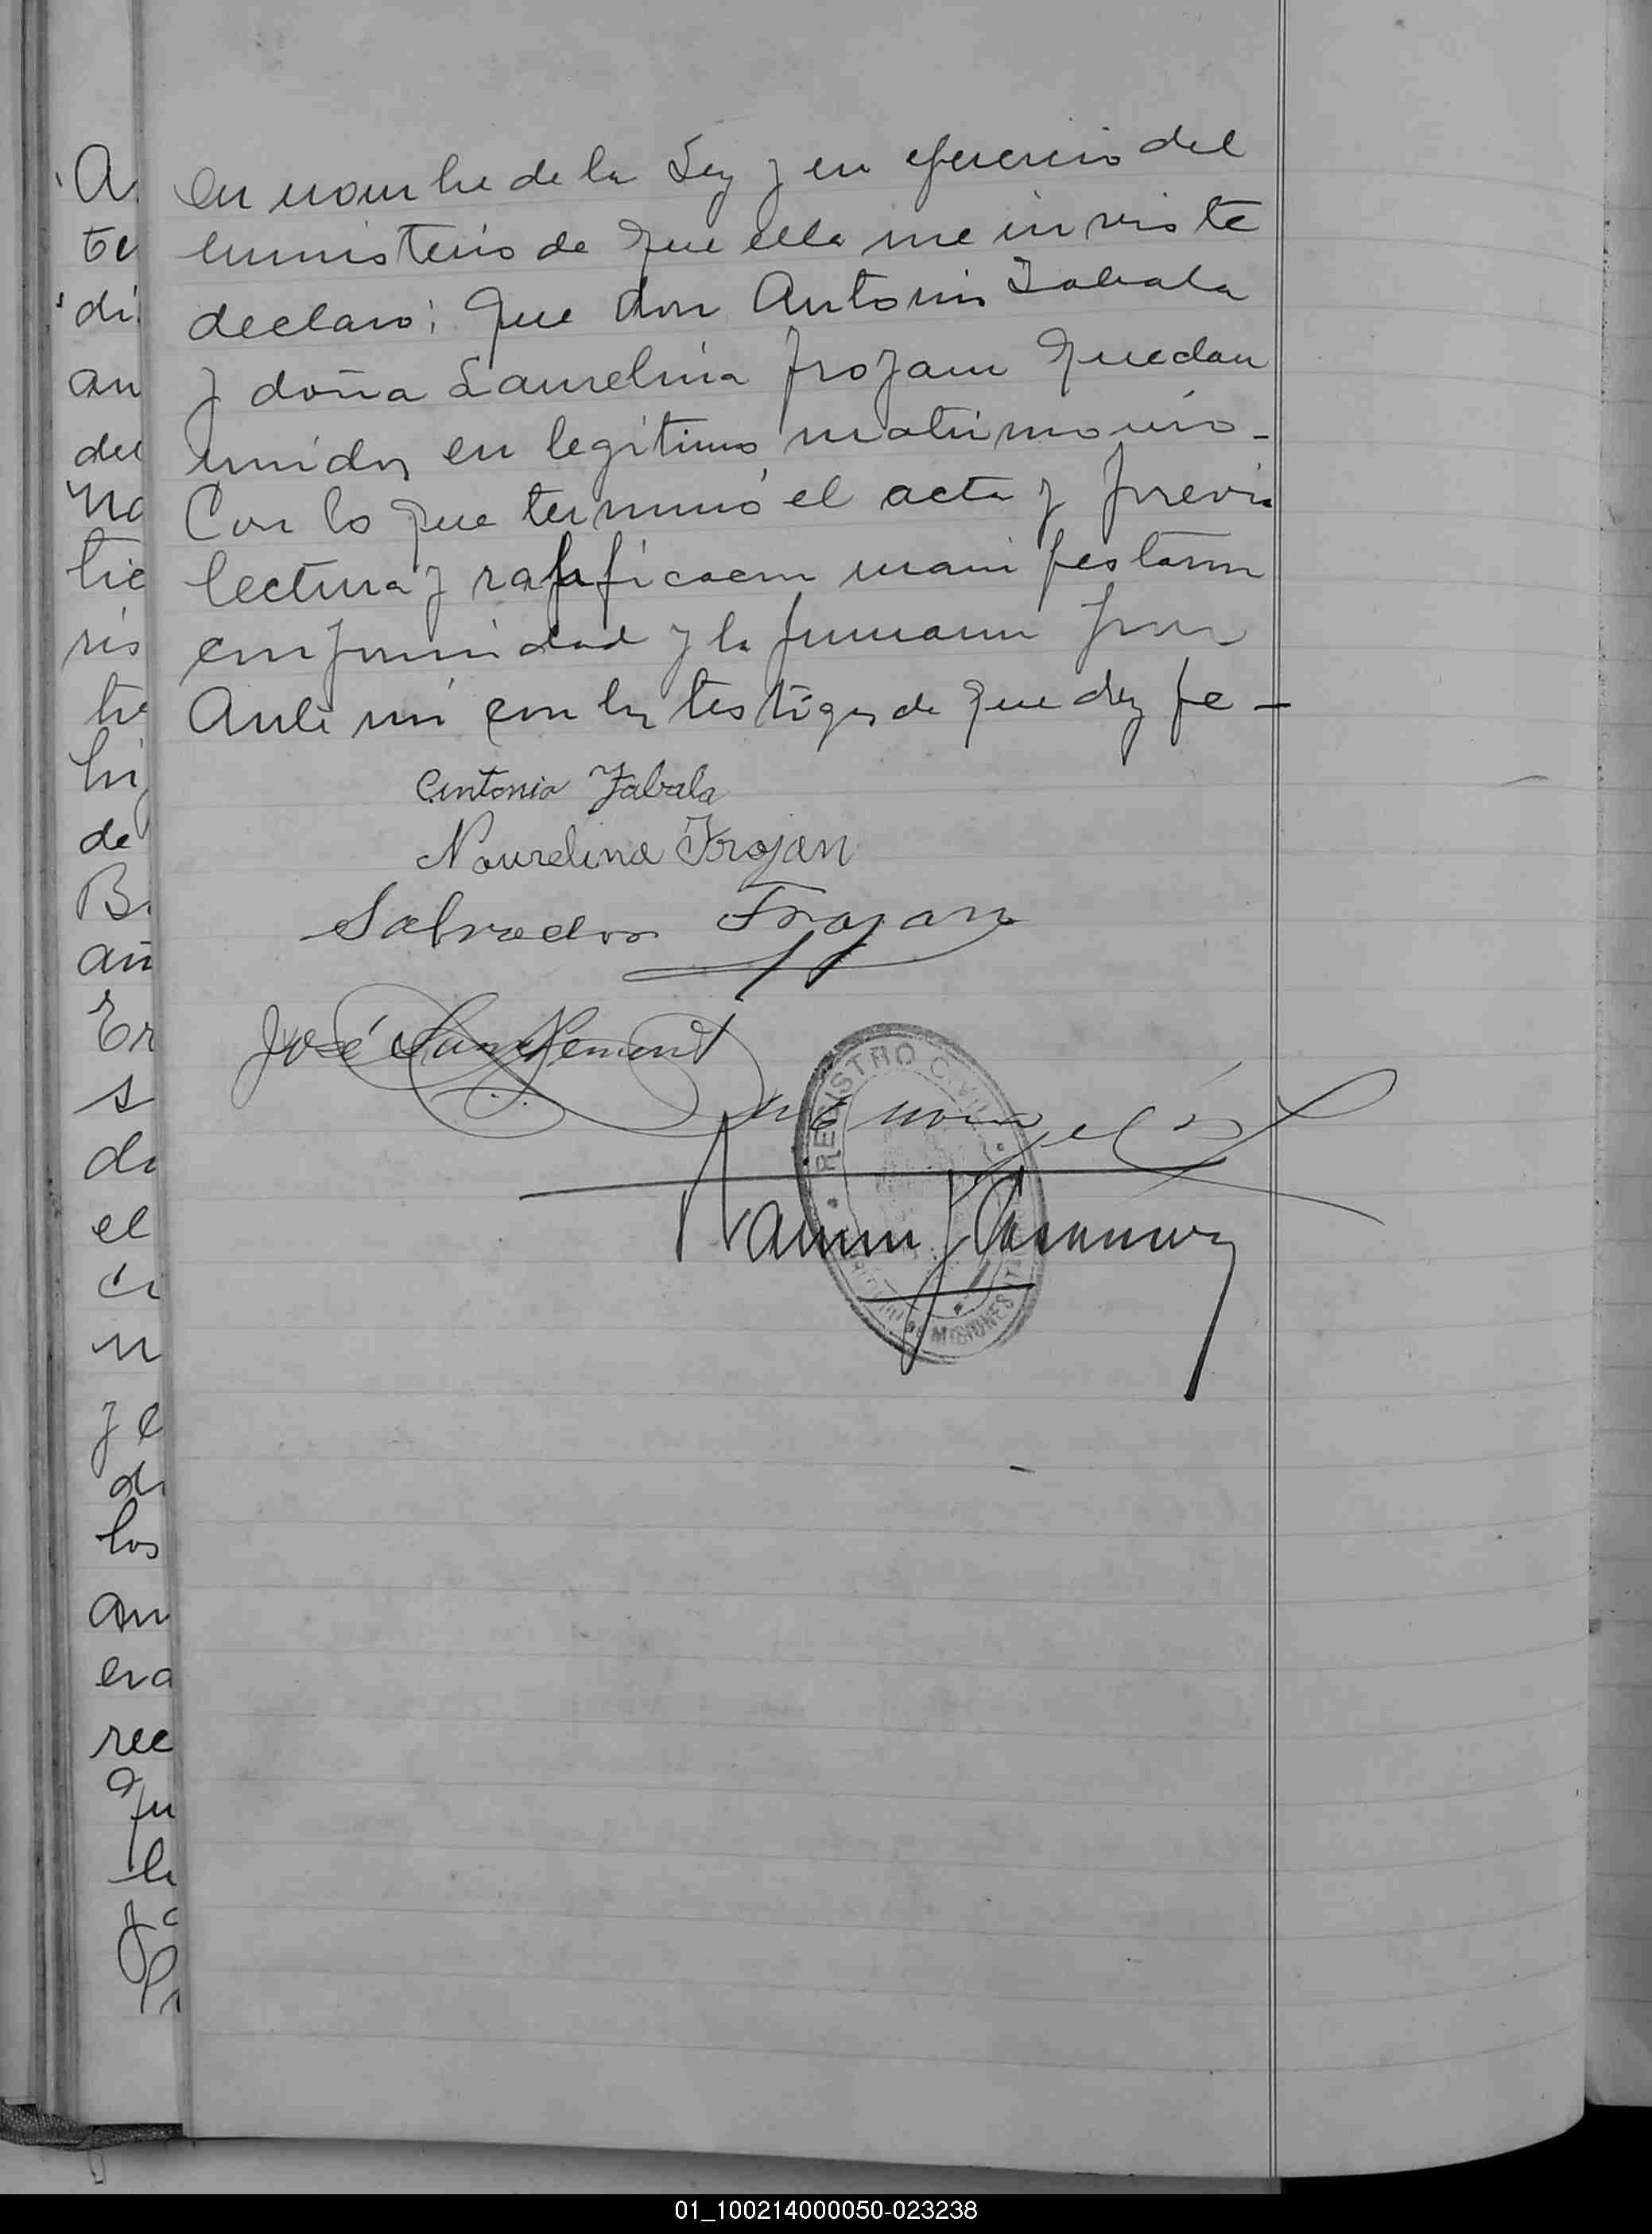 En nombre de la Ley y en ejercicio del
ministerio de que ella me inviste
declaro; que don Antonio Zabala
y doña Laurelina Trojan quedan
unidos en legítimo matrimonio -
Con lo que terminó el acta y previa
lectura y ratificacion manifestaron
conformidad y la firmaron por
Ante mí con los testigos de que doy fe -
Antonio Zabala
Naurelina Trojan
Salvador Trojan
José
REGISTRO CIVIL
Ramon
MISIONES
A
te
di
an
del
no
tie
ris
tr
hi
de
B
añ
Er
s
di
el
ci
n
y e
di
los
an
era
ree
qu
la
01_100214000050-023238